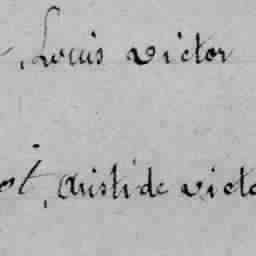 , Louis victor
ot, Aristide victo